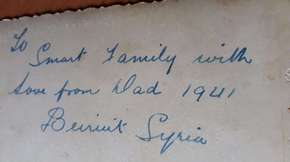 To
Smart Family with
love from Dad 1941
Beiruit Syria